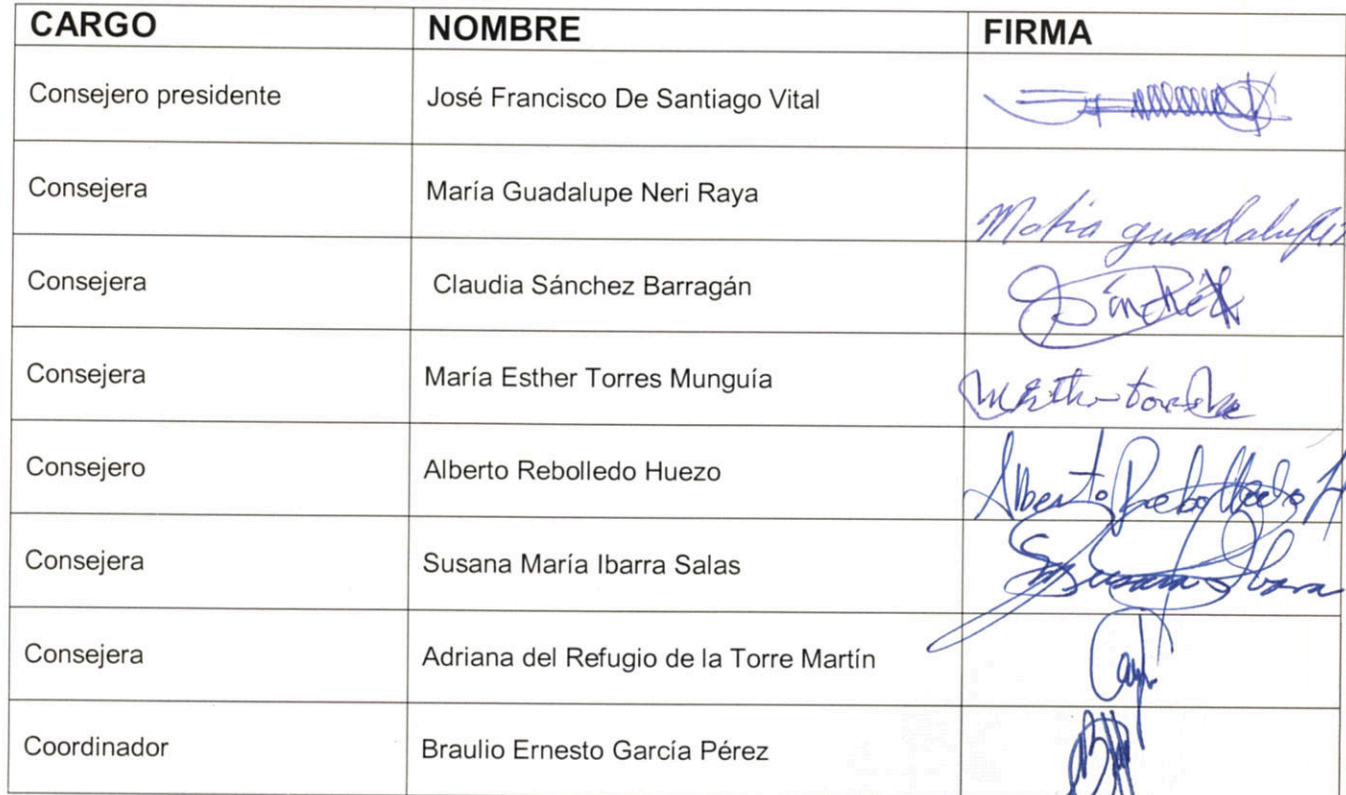 CARGO NOMBRE FIRMA
Consejero presidente José Francisco De Santiago Vital
Consejera María Guadalupe Neri Raya Maria guadalupe
Consejera Claudia Sánchez Barragán Sánchez
Consejera María Esther Torres Munguía
Consejero Alberto Rebolledo Huezo Alberto Rebolledo H
Consejera Susana María Ibarra Salas Susana Ibarra
Consejera Adriana del Refugio de la Torre Martín
Coordinador Braulio Ernesto García Pérez